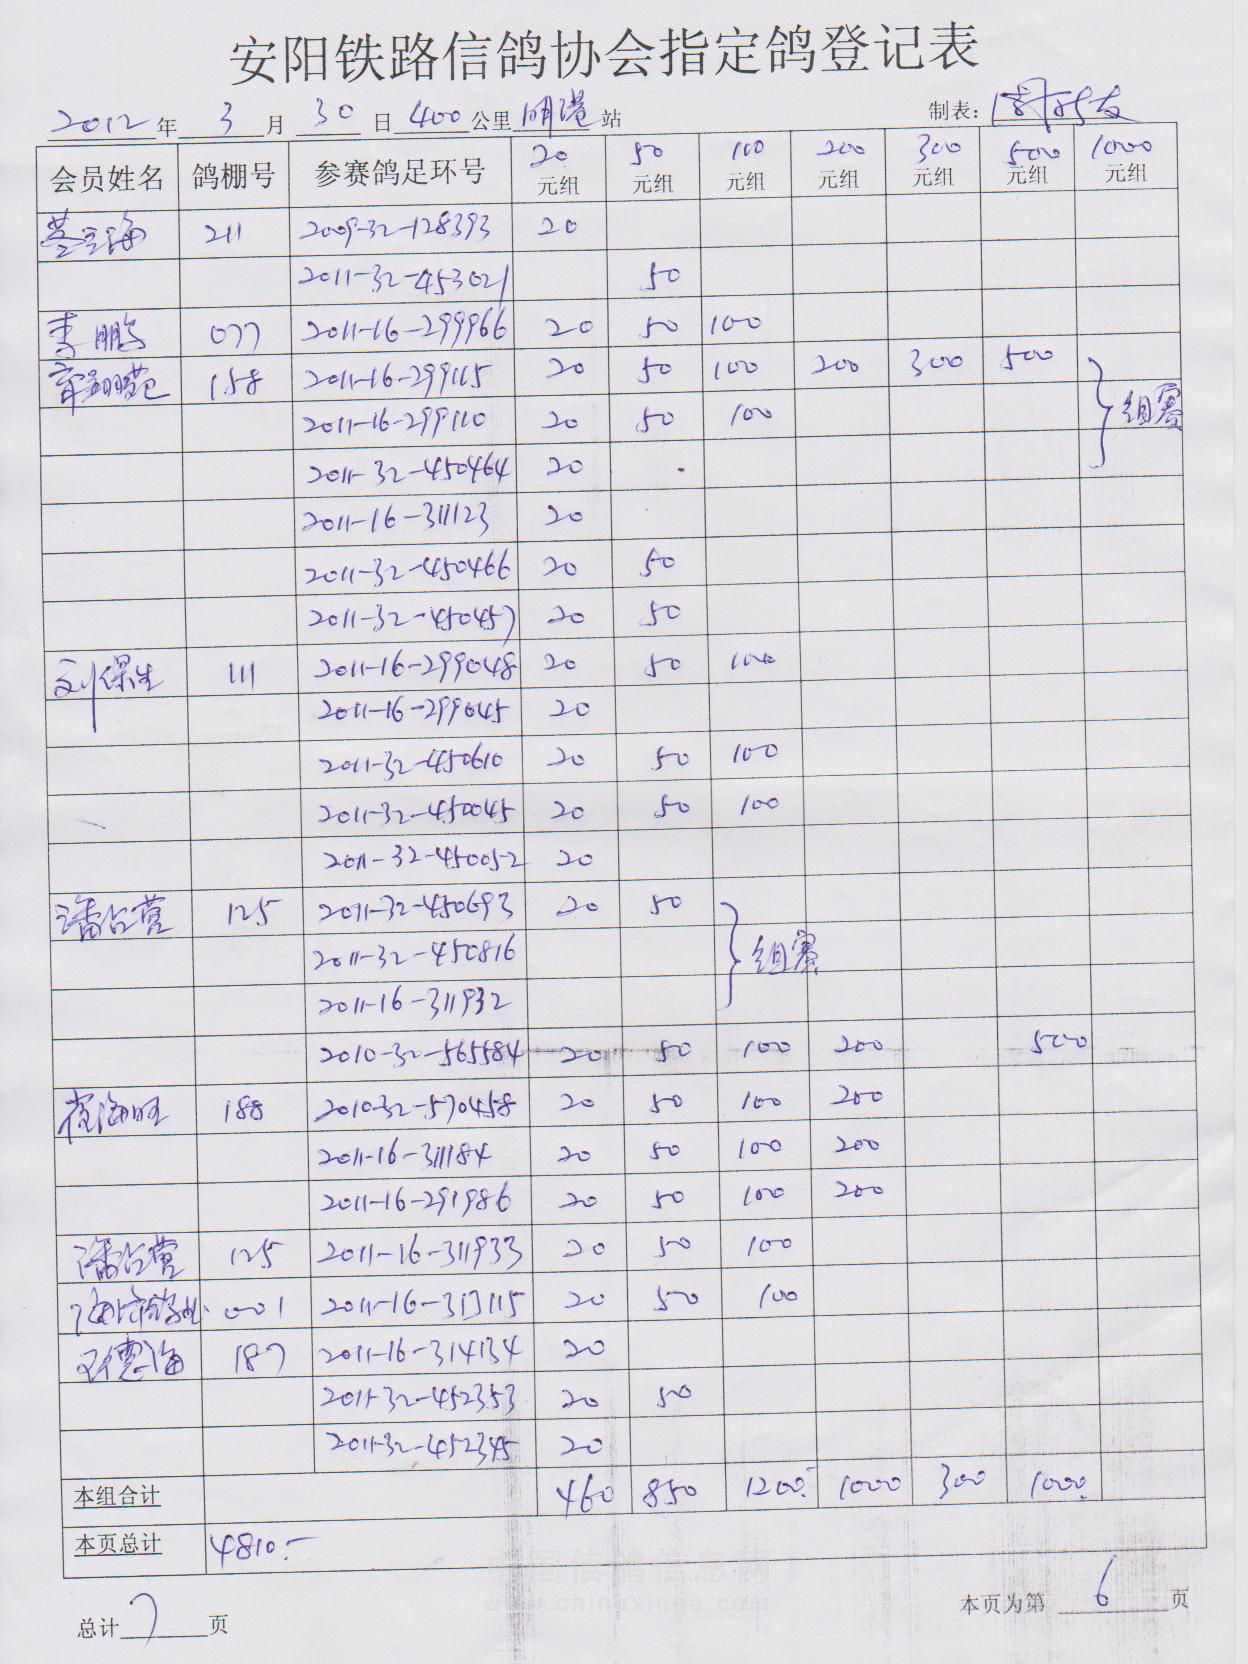 安阳铁路信鸽协会指定鸽登记表
2012年 3 月 30 日 400 公里 明港 站 制表:
会员姓名 鸽棚号 参赛鸽足环号 20元组 50元组 100元组 200元组 300元组 500元组 1000元组
211 2009-32-128393 20
2011-32-453021 50
李鹏 077 2011-16-299966 20 50 100
158 2011-16-299115 20 50 100 200 300 500
2011-16-299110 20 50 100 组赛
2011-32-450464 20
2011-16-311123 20
2011-32-450466 20 50
2011-32-450457 20 50
刘保生 111 2011-16-299048 20 50 100
2011-16-299045 20
2011-32-450610 20 50 100
2011-32-450045 20 50 100
2011-32-450052 20
潘占营 125 2011-32-450693 20 50
2011-32-450816 组赛
2011-16-311932
2010-32-565584 20 50 100 200 500
崔海旺 188 2010-32-570458 20 50 100 200
2011-16-311184 20 50 100 200
2011-16-291986 20 50 100 200
潘占营 125 2011-16-311933 20 50 100
001 2011-16-313115 20 50 100
王德海 187 2011-16-314134 20
2011-32-452353 20 50
2011-32-452345 20
本组合计 460 850 1200.- 1000 300 1000.
本页总计 4810.-
总计 7 页 本页为第 6 页